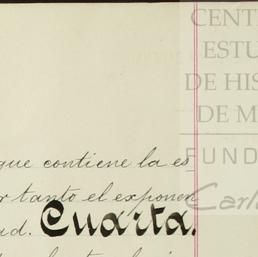 CENT
ESTU
DE HIS
DE M
FUND
Carlo
que contiene la es
r tanto el exponen
ud. Cuarta.